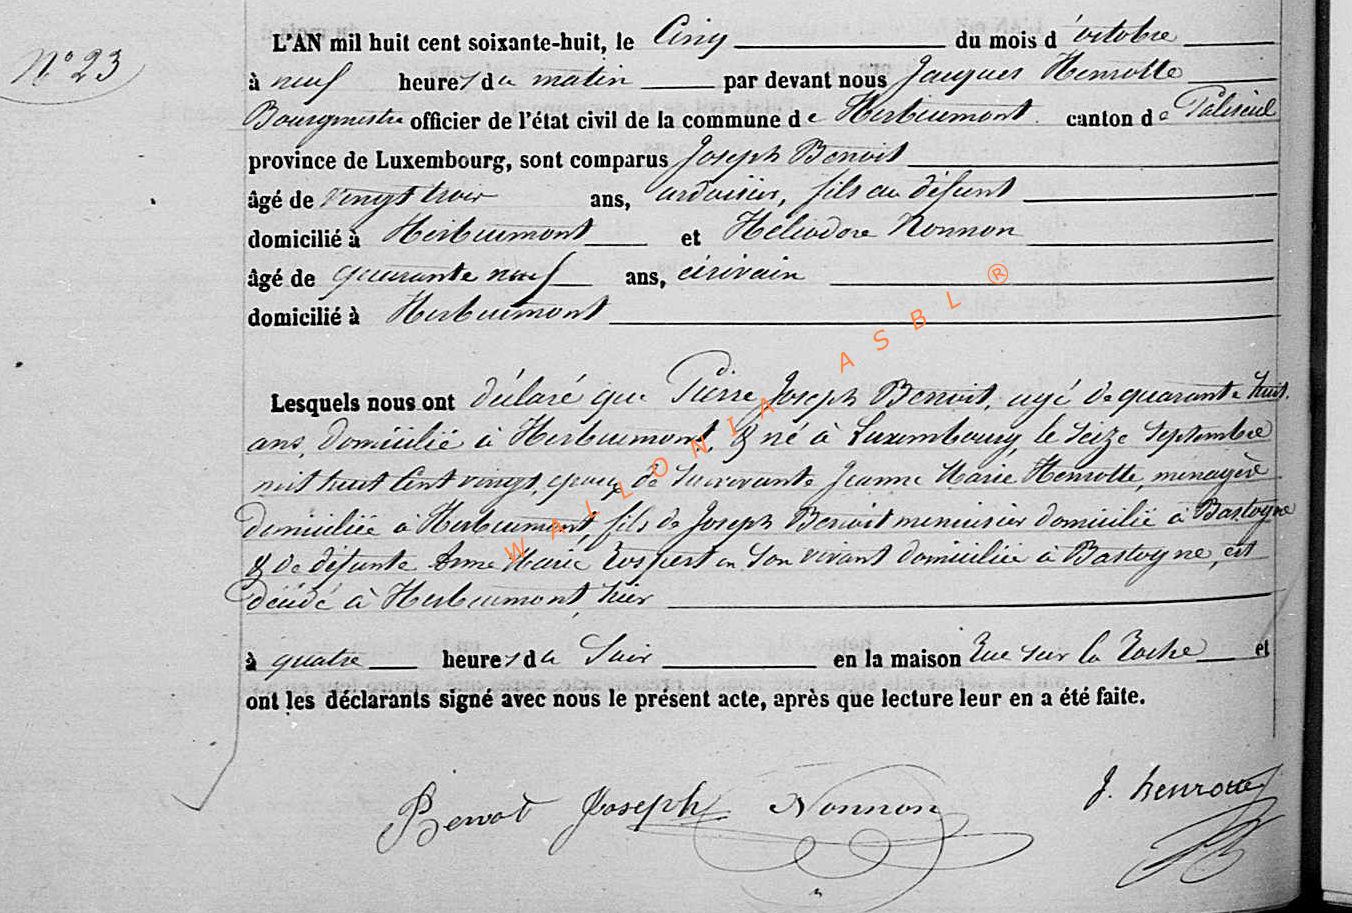 N° 23
L'AN mil huit cent soixante-huit, le Cinq du mois d'octobre
à neuf heures du matin par devant nous Jacques Henrotte
Bourgmestre officier de l'état civil de la commune de Herbeumont canton de Paliseul
province de Luxembourg, sont comparus Joseph Benoit
âgé de vingt trois ans, ardoisier, fils au défunt
domicilié à Herbeumont et Héliodore Nonnon
âgé de quarante neuf ans, écrivain
domicilié à Herbeumont
Lesquels nous ont déclaré que Pierre Joseph Benoit, agé de quarante huit
ans, domicilié à Herbeumont, & né à Luxembourg, le seize septembre
mil huit cent vingt, époux de survivante Jeanne Marie Henrotte, ménagère
domiciliée à Herbeumont, fils de Joseph Benoit menuisier domicilié à Bastogne
& de défunte Anne Marie en son vivant domiciliée à Bastogne, est
décédé à Herbeumont, hier
à quatre heures du Soir en la maison Rue sur la Roche et
ont les déclarants signé avec nous le présent acte, après que lecture leur en a été faite.
Benoit Joseph Nonnon J. henrotte
WALLONIA ASBL ®